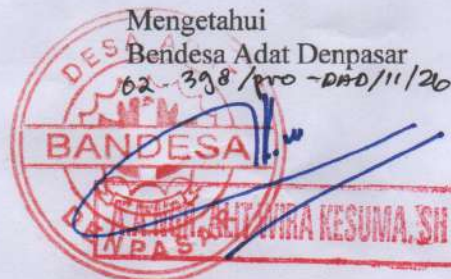 Mengetahui
Bendesa Adat Denpasar
02 - 398 /pro - DAD/11/20
DESA A
BANDESA
DENPASAR
WIRA KESUMA, SH